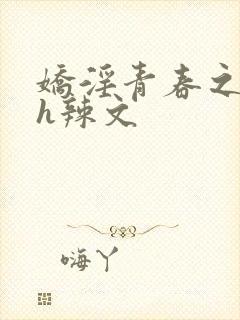 嬌淫青春之
h辣文
嗨丫